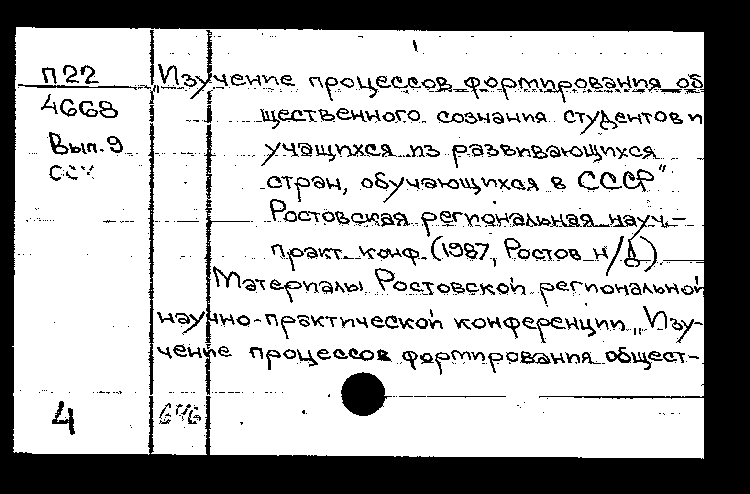 п22
4668
Вып. 9
„Изучение процессов формирования об
щественного сознания студентов и
учащихся из развивающихся
стран, обучающихся в СССР"
Ростовская региональная науч.-
практ. конф. (1987, Ростов н/Д).
Материалы Ростовской региональной
научно-практической конференции „Изу-
чение процессов формирования общест-
4
646